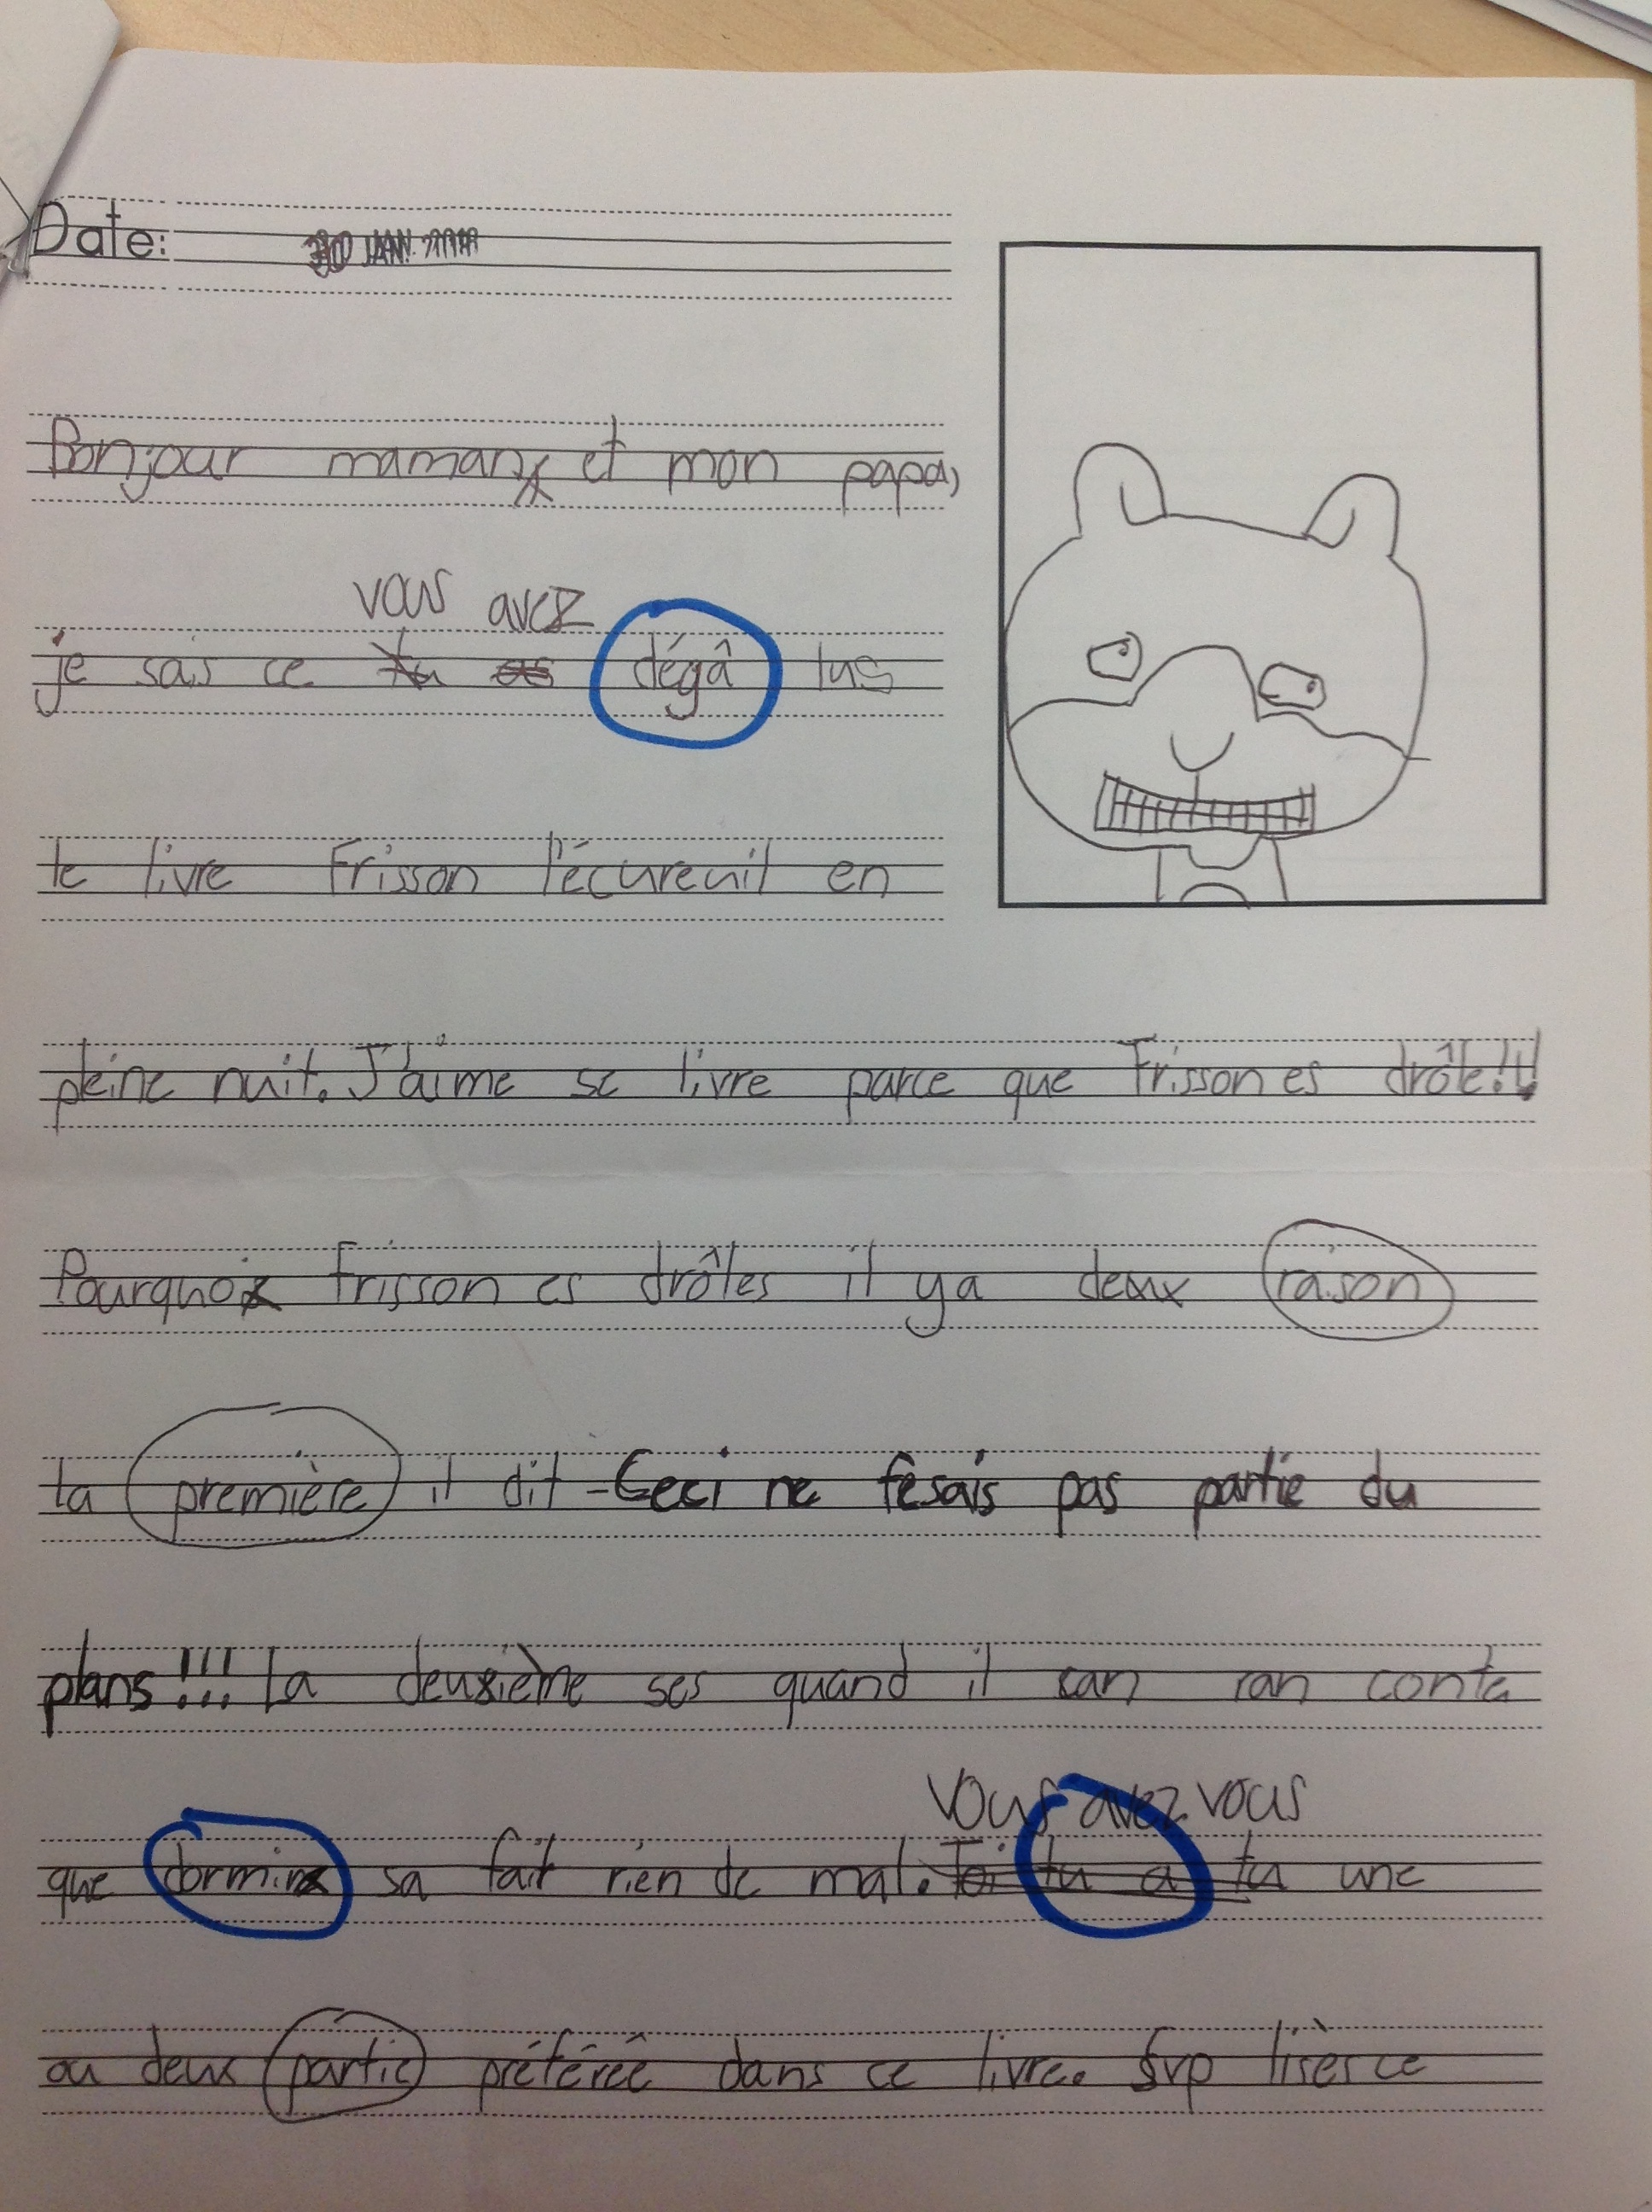 Date: 30 JAN.
Bonjour maman et mon papa,
vous avez
je sais ce tu as dégâ lus
le livre Frisson l'écureuil en
pleine nuit. J'aime se livre parce que Frisson es drôle!!!
Pourquoi Frisson es drôles il ya deux raison
la première il dit - Ceci ne fesais pas partie du
plans!!! La deuxième ses quand il ran conte
Vous avez vous
que dormir sa fait rien de mal. Toi tu a tu une
ou deux partie préférée dans ce livre. Svp lisès ce